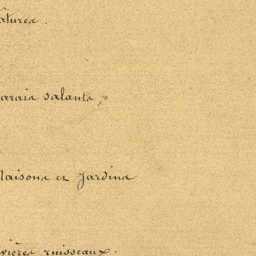 atures.
arais salants,
Maisons et Jardins
vières ruisseaux.